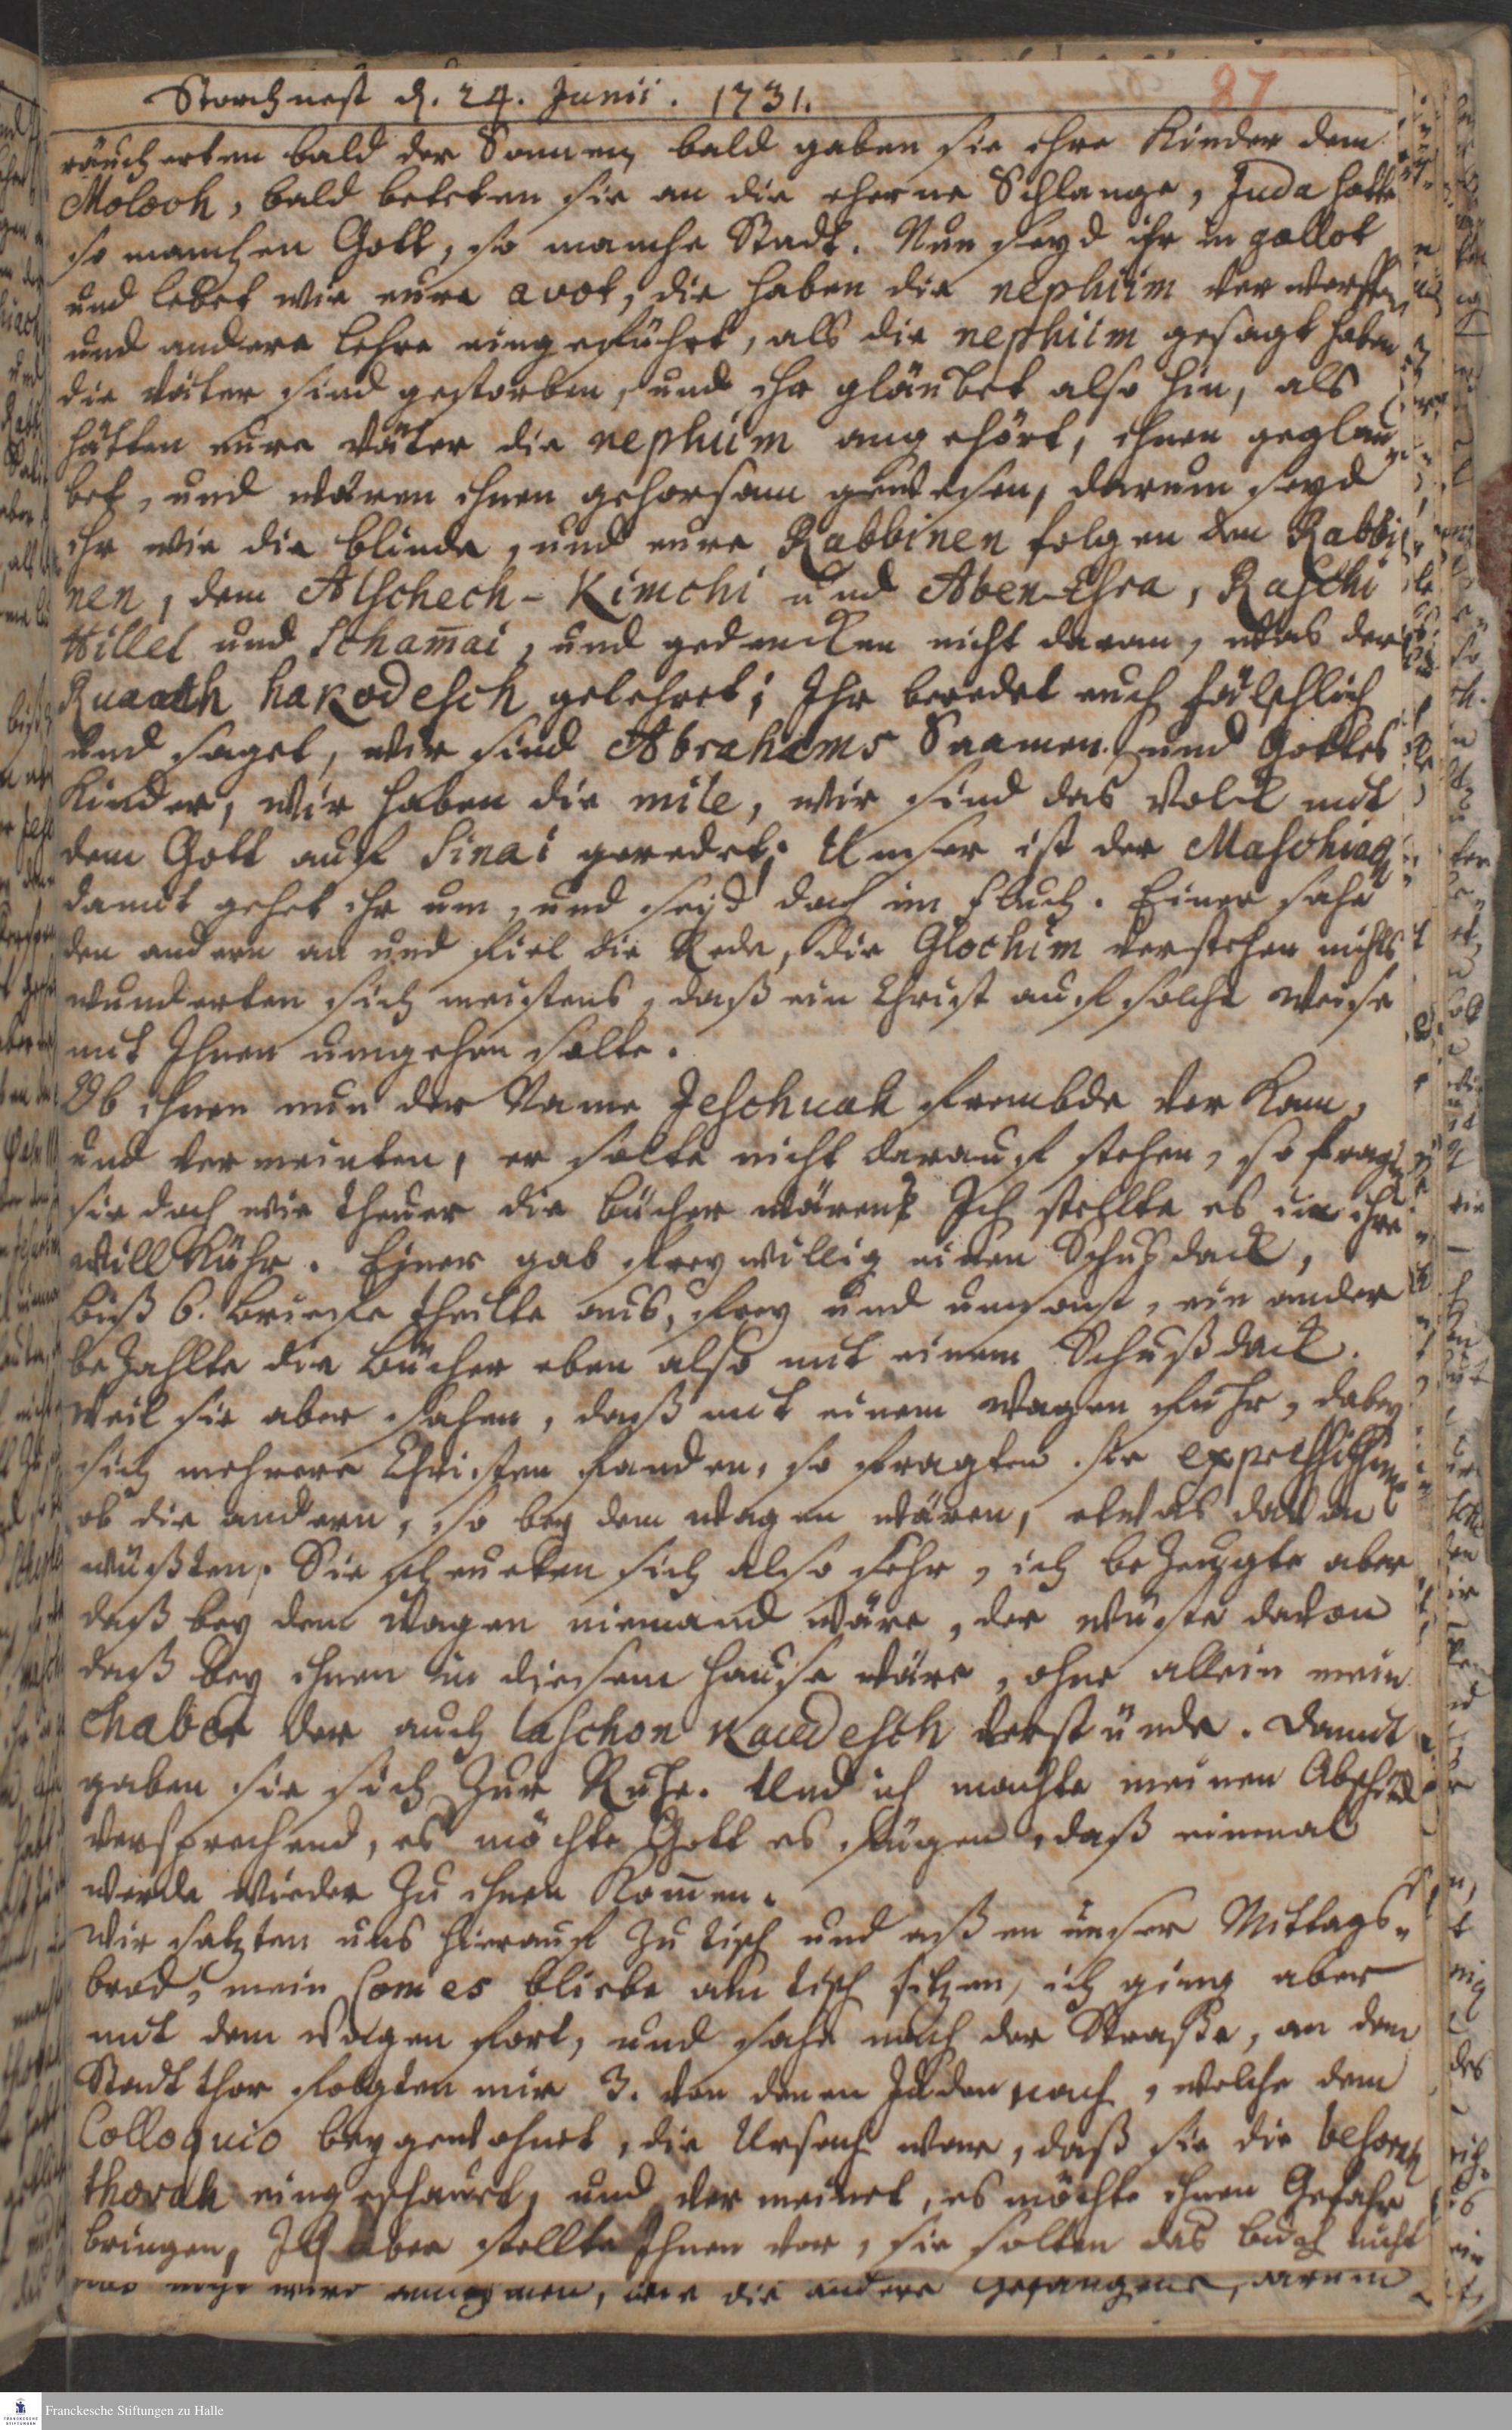 Storchnest d. 24. Junii. 1731.
87
räucherten bald der Sonnen, bald gaben sie ihre Kinder dem
Moloch, bald beteten sie an die eherne Schlange, Juda hatte
so manchen Gott, so manche Stadt. Nun seyd ihr in gallot
und lebet wie eure avot, die haben die nephiim verworffen
und andere Lehre eingeführt, als die nephiim gesagt haben
die Väter sind gestorben, und ihr gläubet also hin, als
hätten eure Väter die nephiim angehört, ihnen geglau-
bet, und wären ihnen gehorsam gewesen, darum seyd
ihr wie die blinde, und eure Rabbinen folgen den Rabbi-
nen, dem Alschech- Kimchi und Aben-Esra, Raschi
Hillel und Schamai, und gedencken nicht daran, was der
Ruach hakodesch gelehret; Ihr beredet euch fälschlich
und saget, wir sind Abrahams Saamen und Gottes
Kinder, wir haben die mile, wir sind das Volck mit
dem Gott auf Sinai geredet; Unser ist der Maschiach
damit gehet ihr um, und seyd doch im Fluch. Einer sahe
den andern an und fiel die Rede, die Glochim verstehen nichts
wunderten sich meistens, daß ein Christ auf solche Weise
mit Ihnen umgehen solte.
Ob ihnen nun der Name Jeschuah frembde vor kam,
und vermeinten, er solte nicht darauf stehen, so fragten
sie doch wie theuer die Bücher wären? Ich stellte es in ihre
Willkühr. Einer gab freywillig einen Schusdack,
biß 6. Briefe theilte aus, frey und umsonst, ein ander
bezahlte die Bücher eben also mit einem Schußdack.
Weil sie aber sahen, daß mit einem Wagen fuhr, dabey
sich mehrere Christen fanden, so fragten sie
ob die andern, so bey dem Wagen wären, etwas davon
wüßten. Sie scheueten sich also sehr, ich bezeugte aber
daß bey dem Wagen niemand wäre, der wüste davon
daß bey ihnen in diesem Hause wäre, ohne allein mein
Chaber der auch laschon kaudesch verstünde. Damit
gaben sie sich zur Ruhe. Und ich machte meinen Abschied
versprechend, es möchte Gott es fügen, daß einmal
werde wieder zu ihnen kommen.
Wir satzten uns hierauf zu Tisch und aßen unser Mittags-
brod, mein Comes bliebe am Tisch sitzen, ich ging aber
mit dem Wagen fort, und sahe nach der Straße, an dem
Stadtthor folgten mir 3. von denen Juden nach, welche dem
Colloquio beygewohnet, die Ursach war, daß sie die besorah
thorah eingeschauet, und vermeinet, es möchte ihnen Gefahr
bringen, Ich aber stellte Ihnen vor, sie solten das Buch nicht
wie die andere Gefangene, darum
Franckesche Stiftungen zu Halle